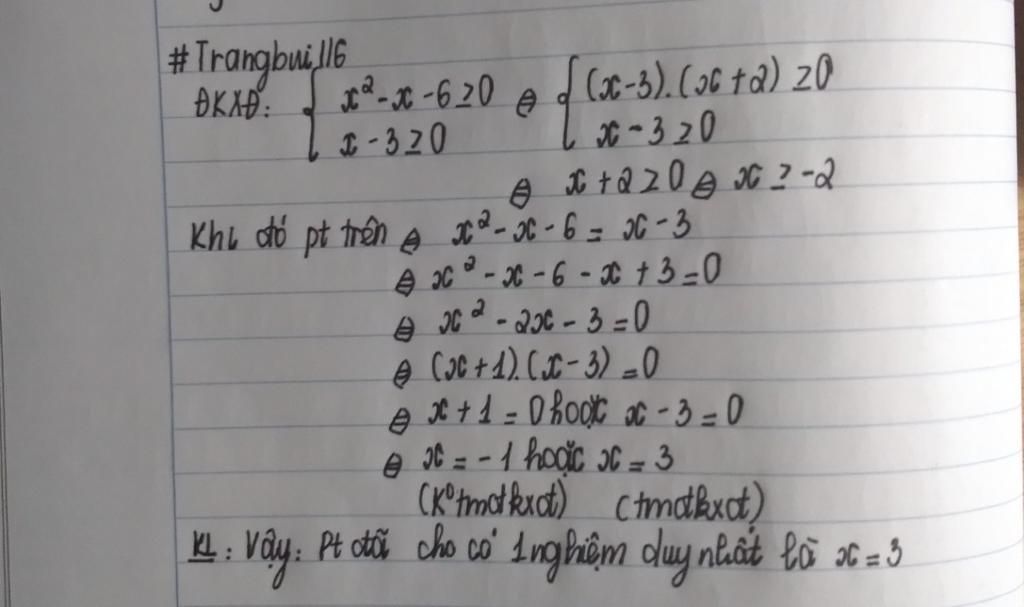 #Trangbui116
ĐKXĐ: { x² - x - 6 ≥ 0 ⇔ { (x-3).(x+2) ≥ 0
x - 3 ≥ 0 x - 3 ≥ 0
⇔ x + 2 ≥ 0 ⇔ x ≥ -2
Khi đó pt trên ⇔ x² - x - 6 = x - 3
⇔ x² - x - 6 - x + 3 = 0
⇔ x² - 2x - 3 = 0
⇔ (x+1).(x-3) = 0
⇔ x + 1 = 0 hoặc x - 3 = 0
⇔ x = -1 hoặc x = 3
(K⁰tmđkxđ) (tmđkxđ)
KL: Vậy: Pt đã cho có 1 nghiệm duy nhất là x = 3